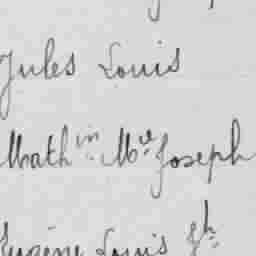 Jules Louis
Math in. Mie Joseph
Eugène Louis Jh.